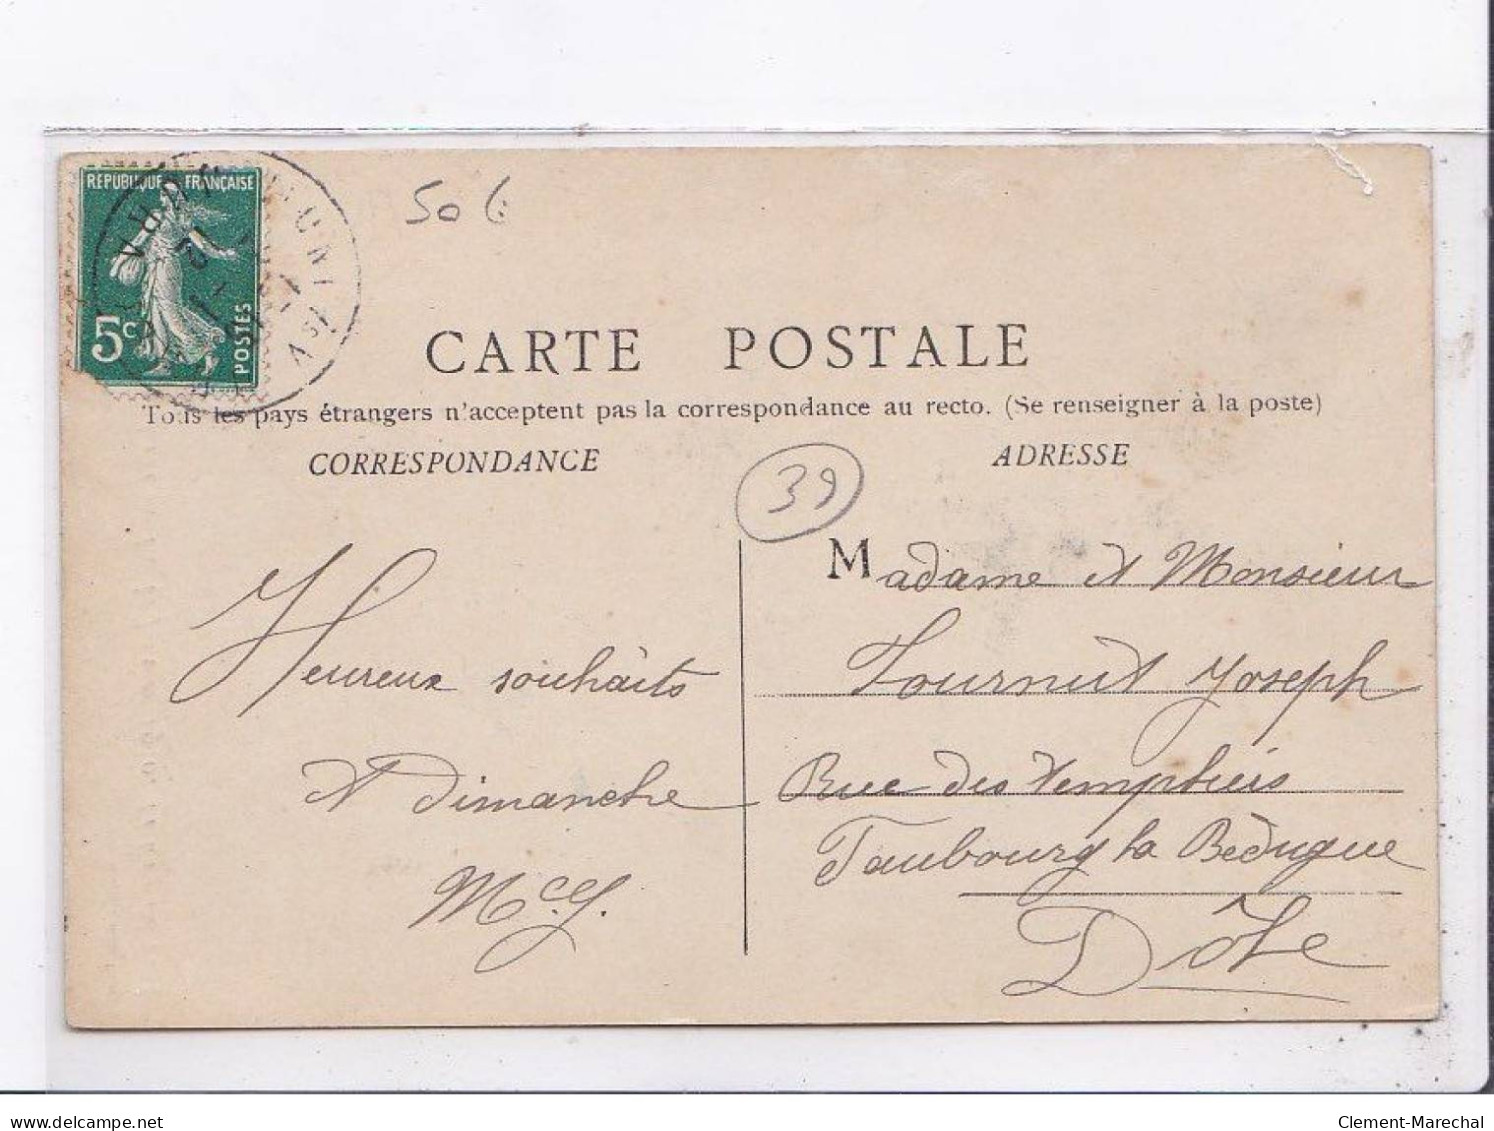 RÉPUBLIQUE FRANÇAISE
5c
POSTES
50 €
CARTE POSTALE
Tous les pays étrangers n'acceptent pas la correspondance au recto. (Se renseigner à la poste)
CORRESPONDANCE
ADRESSE
39
Heureux souhaits
et Dimanche
Madame et Monsieur
Tournut Joseph
Rue des Templiers
Faubourg la Bedugue
Dôle
delcampe.net
Clement-Marechal